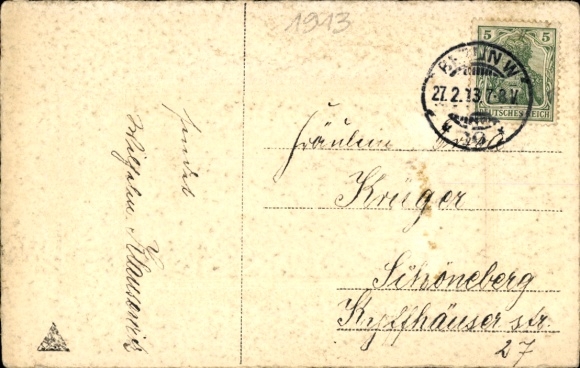 1913
5 5
DEUTSCHES REICH
BERLIN W
27.2.13 7-8 V
Fräulein
Krüger
Schöneberg
Kyffhäuser str
27
sendet
Wilhelm